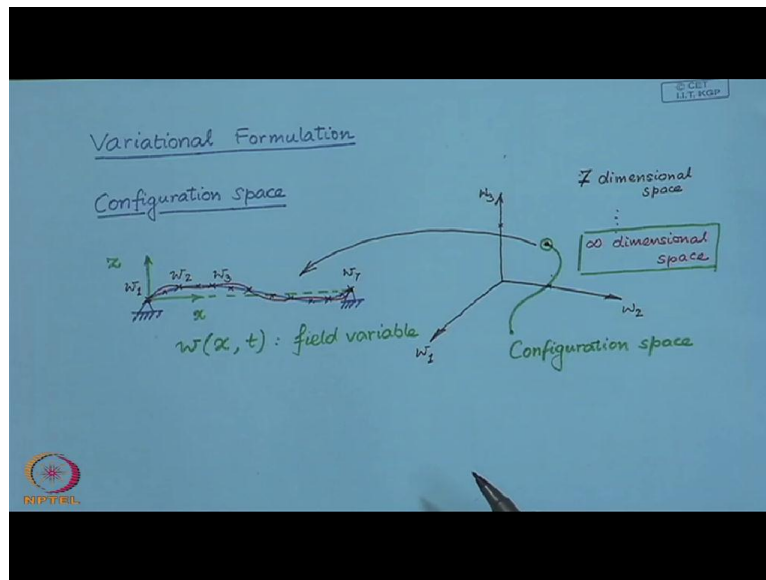 © CET
I.I.T. KGP
Variational Formulation
Configuration space
z
w1 w2 w3 w7
x
w(x, t) : field variable
w3
w2
w1
7 dimensional
space
⋮
∞ dimensional
space
Configuration space
NPTEL